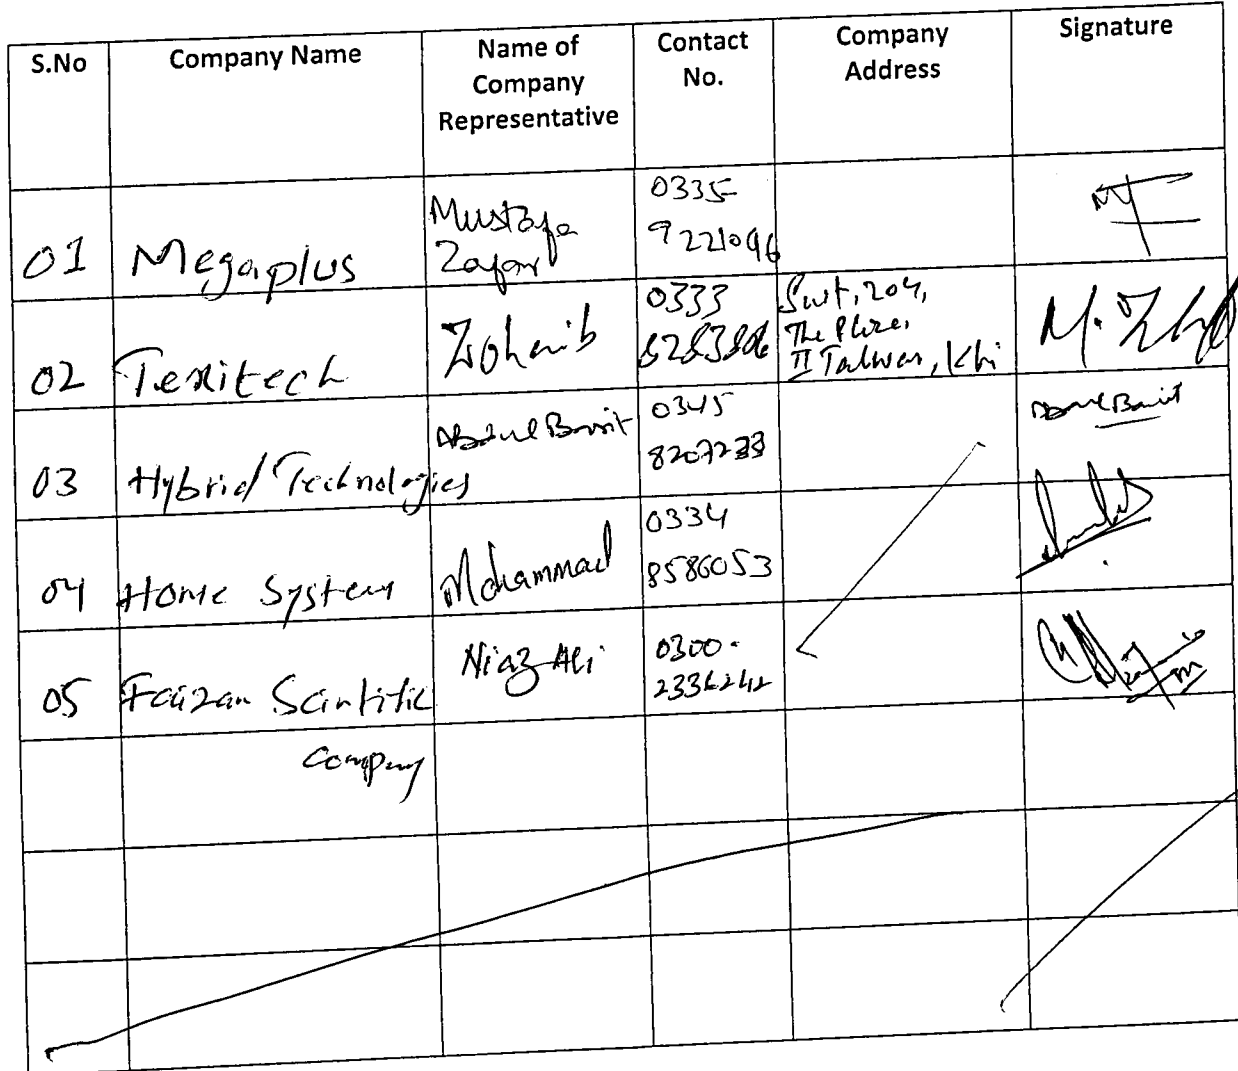 S.No Company Name Name of Company Representative Contact No. Company Address Signature
01 Megaplus Mustafa Zafar 0335- 9221096
02 Texitech Zohaib 0333 The Place, II Talwar, Khi
03 Hybrid Technologies Abdul Basit 0345 8207233 Abdul Basit
04 Home System Mohammad 0334 8586053
05 Faizan Scintific Company Niaz Ali 0300-